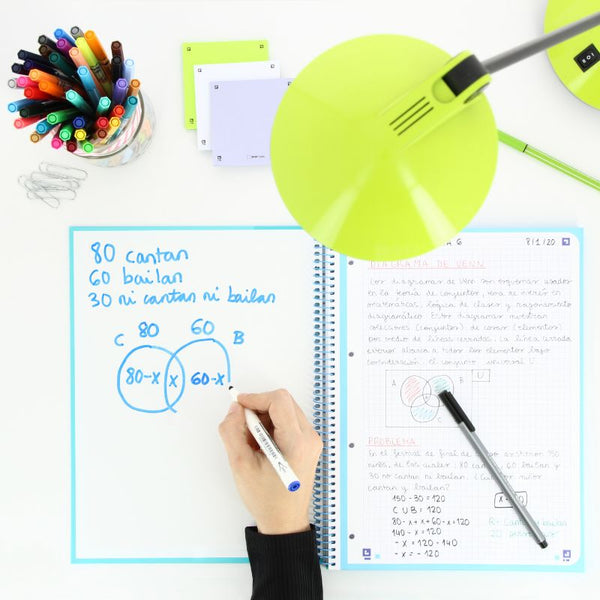 80 cantan
60 bailan
30 ni cantan ni bailan
80 60
C B
80-x x 60-x
8/1/20
DIAGRAMA DE VENN
Los diagramas de Venn son esquemas usados
en la teoría de conjuntos,
matemáticas, lógica de clases y razonamiento
diagramático. Estos diagramas muestran
colecciones (conjuntos) de cosas (elementos)
por medio de líneas cerradas. La línea cerrada
exterior abarca a todos los elementos bajo
consideración, el conjunto universal U.
U
A B
C
PROBLEMA
En el festival de final de 150
80 cantan y 60 bailan y
30 no cantan ni bailan. ¿Cuántos niños
cantan y bailan?
150 - 30 = 120
C U B = 120
80 - x + x + 60 - x = 120
140 - x = 120
- x = 120 - 140
- x = - 120